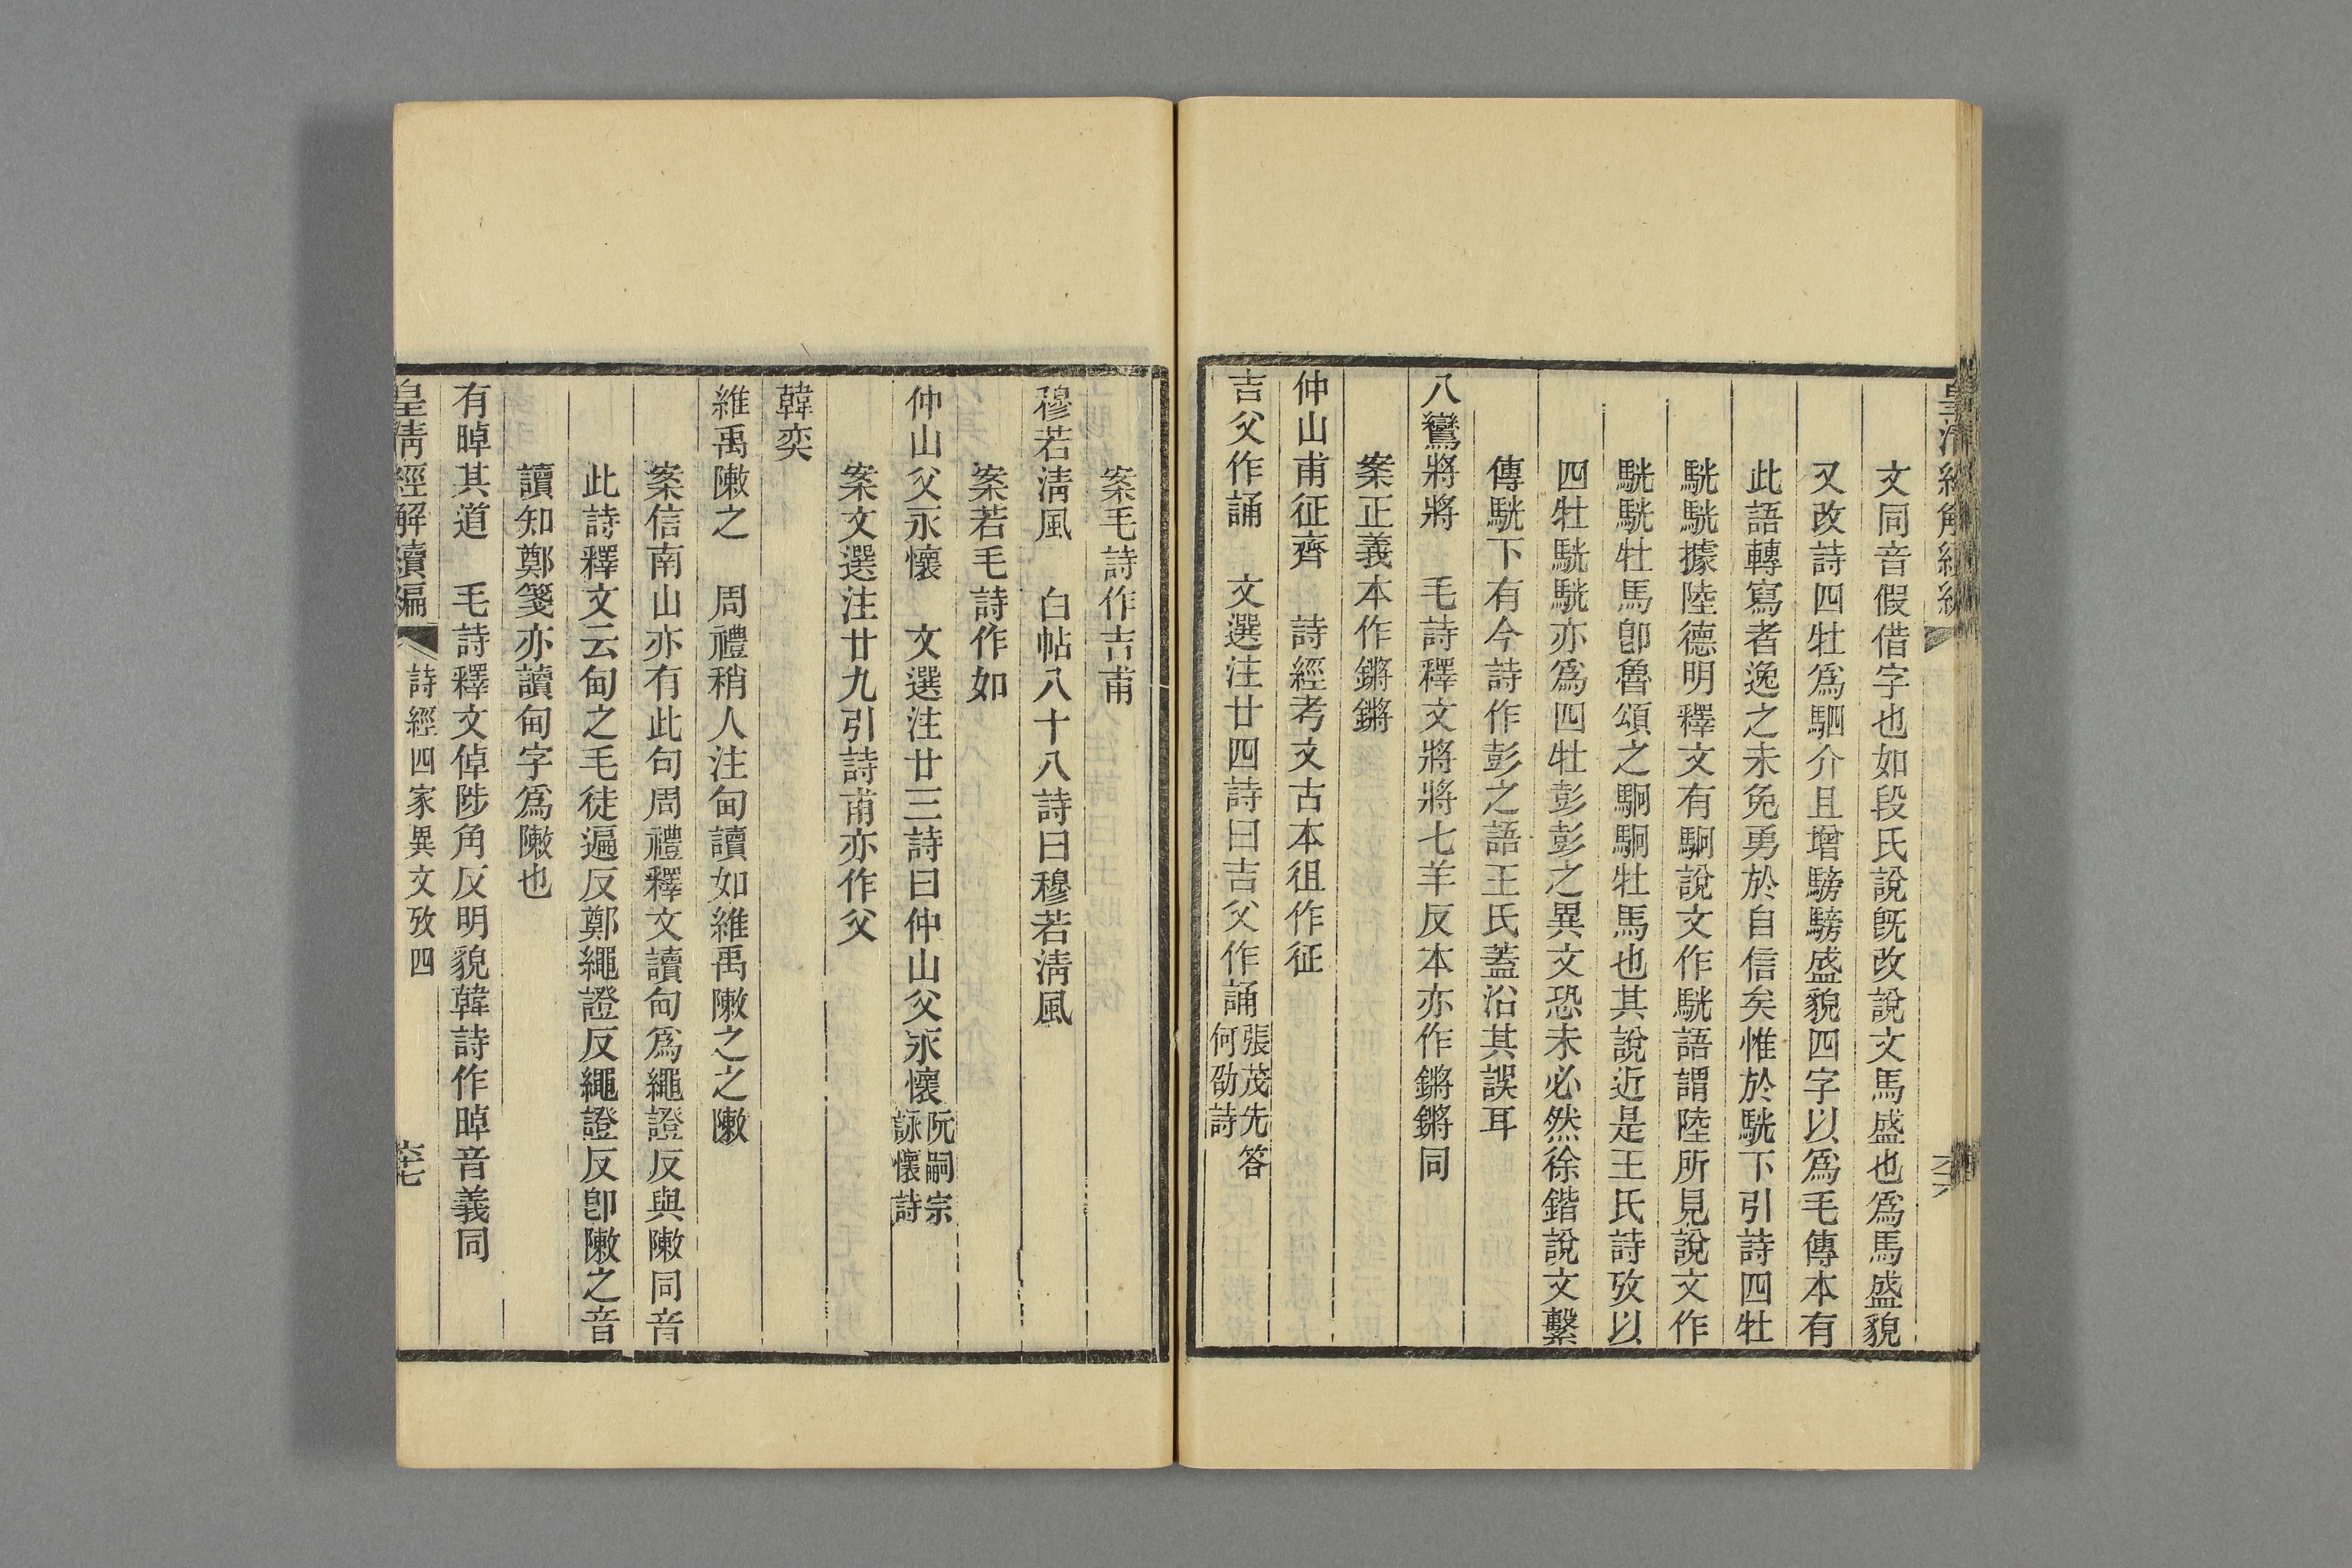 文同音假借字也如段氏說旣改說文馬盛也爲馬盛貌
又改詩四牡爲駟介且增騯騯盛貌四字以爲毛傳本有
此語轉寫者逸之未免勇於自信矣惟於駫下引詩四牡
駫駫據陸德明釋文有駉說文作駫語謂陸所見說文作
駫駫牡馬卽魯頌之駉駉牡馬也其說近是王氏詩攷以
四牡駫駫亦爲四牡彭彭之異文恐未必然徐鍇說文繫
傳駫下有今詩作彭之語王氏蓋沿其誤耳
八鸞將將　毛詩釋文將將七羊反本亦作鏘鏘同
案正義本作鏘鏘
仲山甫征齊　詩經考文古本徂作征
吉父作誦　文選注廿四詩曰吉父作誦張茂先答何劭詩
案毛詩作吉甫
穆若淸風　白帖八十八詩曰穆若淸風
案若毛詩作如
仲山父永懷　文選注廿三詩曰仲山父永懷阮嗣宗詠懷詩
案文選注廿九引詩甫亦作父
韓奕
維禹敶之　周禮稍人注甸讀如維禹敶之之敶
案信南山亦有此句周禮釋文讀甸爲繩證反與敶同音
此詩釋文云甸之毛徒遍反鄭繩證反繩證反卽敶之音
讀知鄭箋亦讀甸字爲敶也
有晫其道　毛詩釋文倬陟角反明貌韓詩作晫音義同
皇淸經解續編　詩經四家異文攷四　六十七